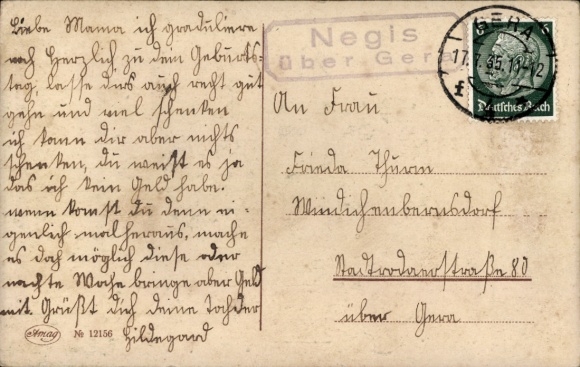 Liebe Mama ich graduliere
noch Herzlich zu dem Geburts-
tag, lasse dirs auch recht gut
gehn und viel schenken
ich kann dir aber nichts
schenken, du weist es ja
das ich kein Geld habe.
wenn komst du denn ei-
genlich mal heraus, mache
es doch möglich diese oder
nächste Woche bringe aber Geld
mit. Grüßt dich deine Tochter
Hildegard
Amag
№ 12156
Negis
über Gera
GERA
17. 7. 35. 11-12
f
6 6
Deutsches Reich
An Frau
Frieda Thurm
Windischenbernsdorf
Stadtrodaerstraße 80
über Gera